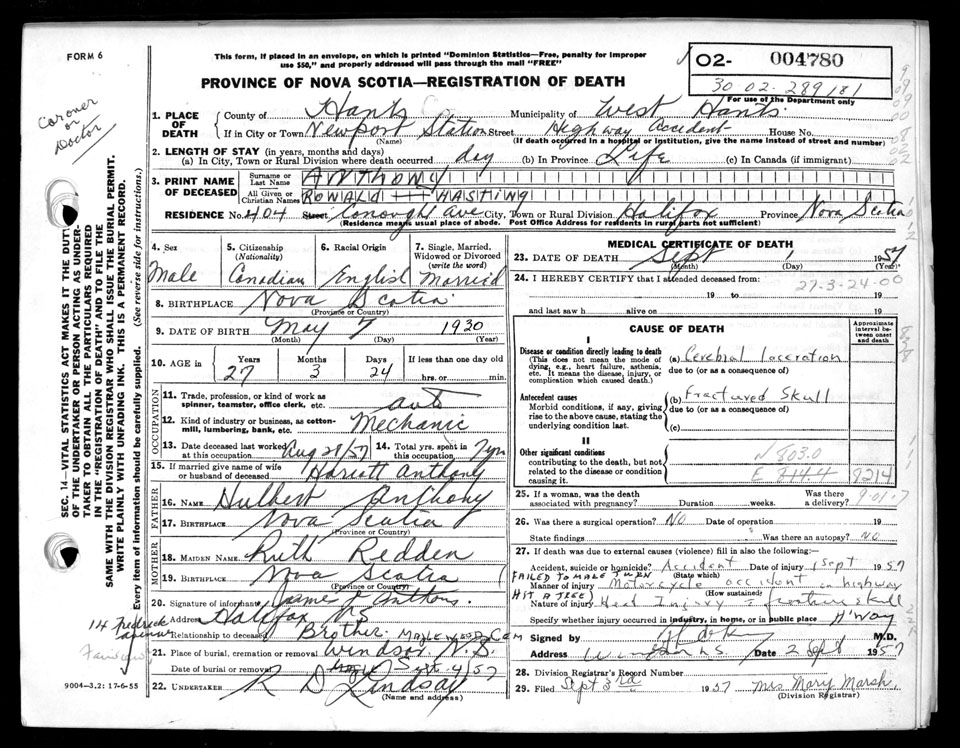 FORM 6
This form, if placed in an envelope, on which is printed "Dominion Statistics—Free, penalty for improper
use $50," and properly addressed will pass through the mail "FREE"
PROVINCE OF NOVA SCOTIA—REGISTRATION OF DEATH
02- 004780
30 02- 289181
For use of the Department only
Coroner
or
Doctor
SEC. 14—VITAL STATISTICS ACT MAKES IT THE DUTY
OF THE UNDERTAKER OR PERSON ACTING AS UNDER-
TAKER TO OBTAIN ALL THE PARTICULARS REQUIRED
IN THE "REGISTRATION OF DEATH" AND TO FILE THE
SAME WITH THE DIVISION REGISTRAR WHO SHALL ISSUE THE BURIAL PERMIT.
WRITE PLAINLY WITH UNFADING INK. THIS IS A PERMANENT RECORD.
Every item of information should be carefully supplied. (See reverse side for instructions.)
1. PLACE OF DEATH
County of Hants Municipality of West Hants
If in City or Town Newport Station Street Highway Accident House No.
(Name) (If death occurred in a hospital or institution, give the name instead of street and number)
2. LENGTH OF STAY (in years, months and days)
(a) In City, Town or Rural Division where death occurred day (b) In Province Life (c) In Canada (if immigrant)
3. PRINT NAME OF DECEASED
Surname or Last Name ANTHONY
All Given or Christian Names RONALD HASTING
RESIDENCE No. 404 Street Conough Ave City, Town or Rural Division Halifax Province Nova Scotia
(Residence means usual place of abode. Post Office Address for residents in rural parts not sufficient)
4. Sex Male
5. Citizenship (Nationality) Canadian
6. Racial Origin English
7. Single, Married, Widowed or Divorced (write the word) Married
8. BIRTHPLACE Nova Scotia
(Province or Country)
9. DATE OF BIRTH May 7 1930
(Month) (Day) (Year)
10. AGE in Years 27 Months 3 Days 24 If less than one day old
hrs. or min.
OCCUPATION
11. Trade, profession, or kind of work as
spinner, teamster, office clerk, etc. auto
12. Kind of industry or business, as cotton-
mill, lumbering, bank, etc. Mechanic
13. Date deceased last worked at this occupation Aug 31/57 14. Total yrs. spent in this occupation 7 yrs
15. If married give name of wife
or husband of deceased Hariett Anthony
FATHER
16. NAME Hulbert Anthony
17. BIRTHPLACE Nova Scotia
(Province or Country)
MOTHER
18. MAIDEN NAME Ruth Redden
19. BIRTHPLACE Nova Scotia
(Province or Country)
20. Signature of informant James Anthony
Address Halifax NS
14 Fredrick avenue
Fairview
Relationship to deceased Brother
MAPLEWOOD CEM
21. Place of burial, cremation or removal Windsor N.S.
Date of burial or removal Sept 4/57
22. UNDERTAKER R D Lindsay
(Name and address)
9004—3,2: 17-6-55
MEDICAL CERTIFICATE OF DEATH
23. DATE OF DEATH Sept 1 1957
(Month) (Day) (Year)
24. I HEREBY CERTIFY that I attended deceased from:
27-3-24-00
19 to 19
and last saw h alive on 19
CAUSE OF DEATH
Approximate interval between onset and death
I
Disease or condition directly leading to death (a) Cerebral laceration
(This does not mean the mode of dying, e.g., heart failure, asthenia, etc. It means the disease, injury, or complication which caused death.)
due to (or as a consequence)
Antecedent causes (b) Fractured Skull
Morbid conditions, if any, giving rise to the above cause, stating the underlying condition last.
due to (or as a consequence)
(c)
II
Other significant conditions
contributing to the death, but not related to the disease or condition causing it.
N 803.0
E 814.4 8214
25. If a woman, was the death associated with pregnancy? Duration weeks. Was there a delivery?
9-01-7
26. Was there a surgical operation? NO Date of operation 19
State findings Was there an autopsy? NO
27. If death was due to external causes (violence) fill in also the following:—
Accident, suicide or homicide? Accident Date of injury 1 Sept 1957
(State which)
FAILED TO MAKE TURN
HIT A TREE)
Manner of injury Motorcycle accident on highway
(How sustained)
Nature of injury Head Injury - fracture skull
Specify whether injury occurred in industry, in home, or in public place H'way
Signed by M.D.
Address Windsor NS Date 2 Sept 1957
28. Division Registrar's Record Number
29. Filed Sept 3rd 1957 Mrs Mary Marsh
(Division Registrar)